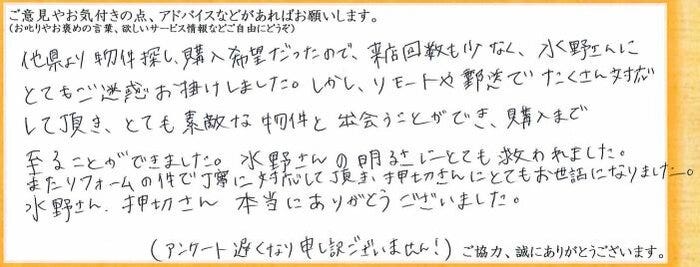 ご意見やお気付きの点、アドバイスなどがあればお願いします。
(お叱りやお褒めの言葉、欲しいサービス情報などご自由にどうぞ)
他県より物件探し、購入希望だったので、来店回数も少なく、水野さんに
とてもご迷惑お掛けしました。しかし、リモートや郵送でたくさん対応
して頂き、とても素敵な物件と出会うことができ、購入まで
至ることができました。水野さんの明るさにとても救われました。
またリフォームの件で丁寧に対応して頂き、押切さんにとてもお世話になりました。
水野さん、押切さん 本当にありがとうございました。
(アンケート遅くなり申し訳ございません!)ご協力、誠にありがとうございます。